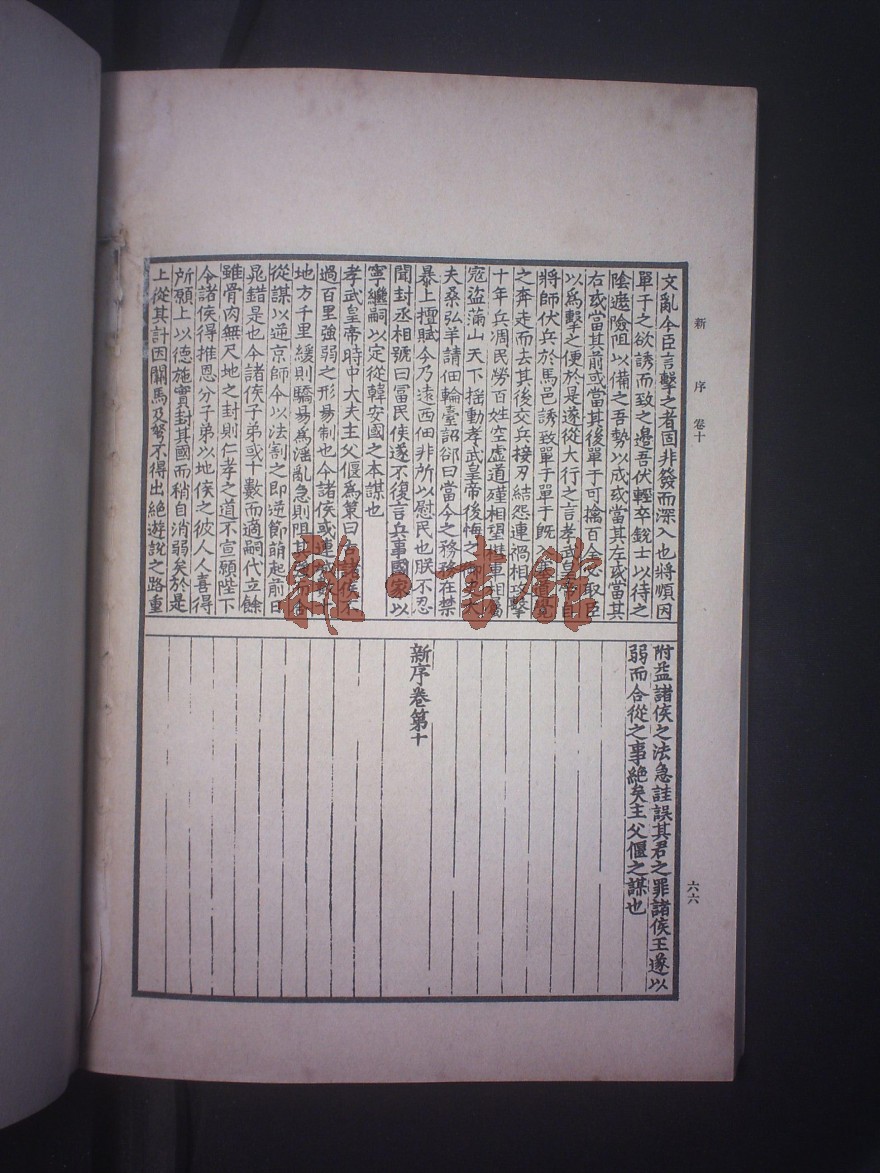 新序 卷十
文亂今臣言擊之者固非發而深入也將順因
單于之欲誘而致之邊吾伏輕卒銳士以待之
陰遮險阻以備之吾勢以成或當其左或當其
右或當其前或當其後單于可擒百全必取臣
以為擊之便於是遂從大行之言孝武皇帝自
將師伏兵於馬邑誘致單于單于既入
之奔走而去其後交兵接刃結怨連禍相攻擊
十年兵凋民勞百姓空虛道殣相望槥車相屬
寇盜滿山天下搖動孝武皇帝後悔之御史大
夫桑弘羊請佃輪臺詔卻曰當今之務務在禁
暴止擅賦今乃遠西佃非所以慰民也朕不忍
聞封丞相號曰富民侯遂不復言兵事國家以
寧繼嗣以定從韓安國之本謀也
孝武皇帝時中大夫主父偃為策曰古諸侯不
過百里強弱之形易制也今諸侯或連城數十
地方千里緩則驕易為淫亂急則阻其強而合
從謀以逆京師今以法割之即逆節萌起前日
晁錯是也今諸侯子弟或十數而適嗣代立餘
雖骨肉無尺地之封則仁孝之道不宣願陛下
令諸侯得推恩分子弟以地侯之彼人人喜得
所願上以德施實封其國而稍自消弱矣於是
上從其計因關馬及弩不得出絕遊說之路重
附益諸侯之法急詿誤其君之罪諸侯王遂以
弱而合從之事絕矣主父偃之謀也
新序卷第十
六六
雜·書館